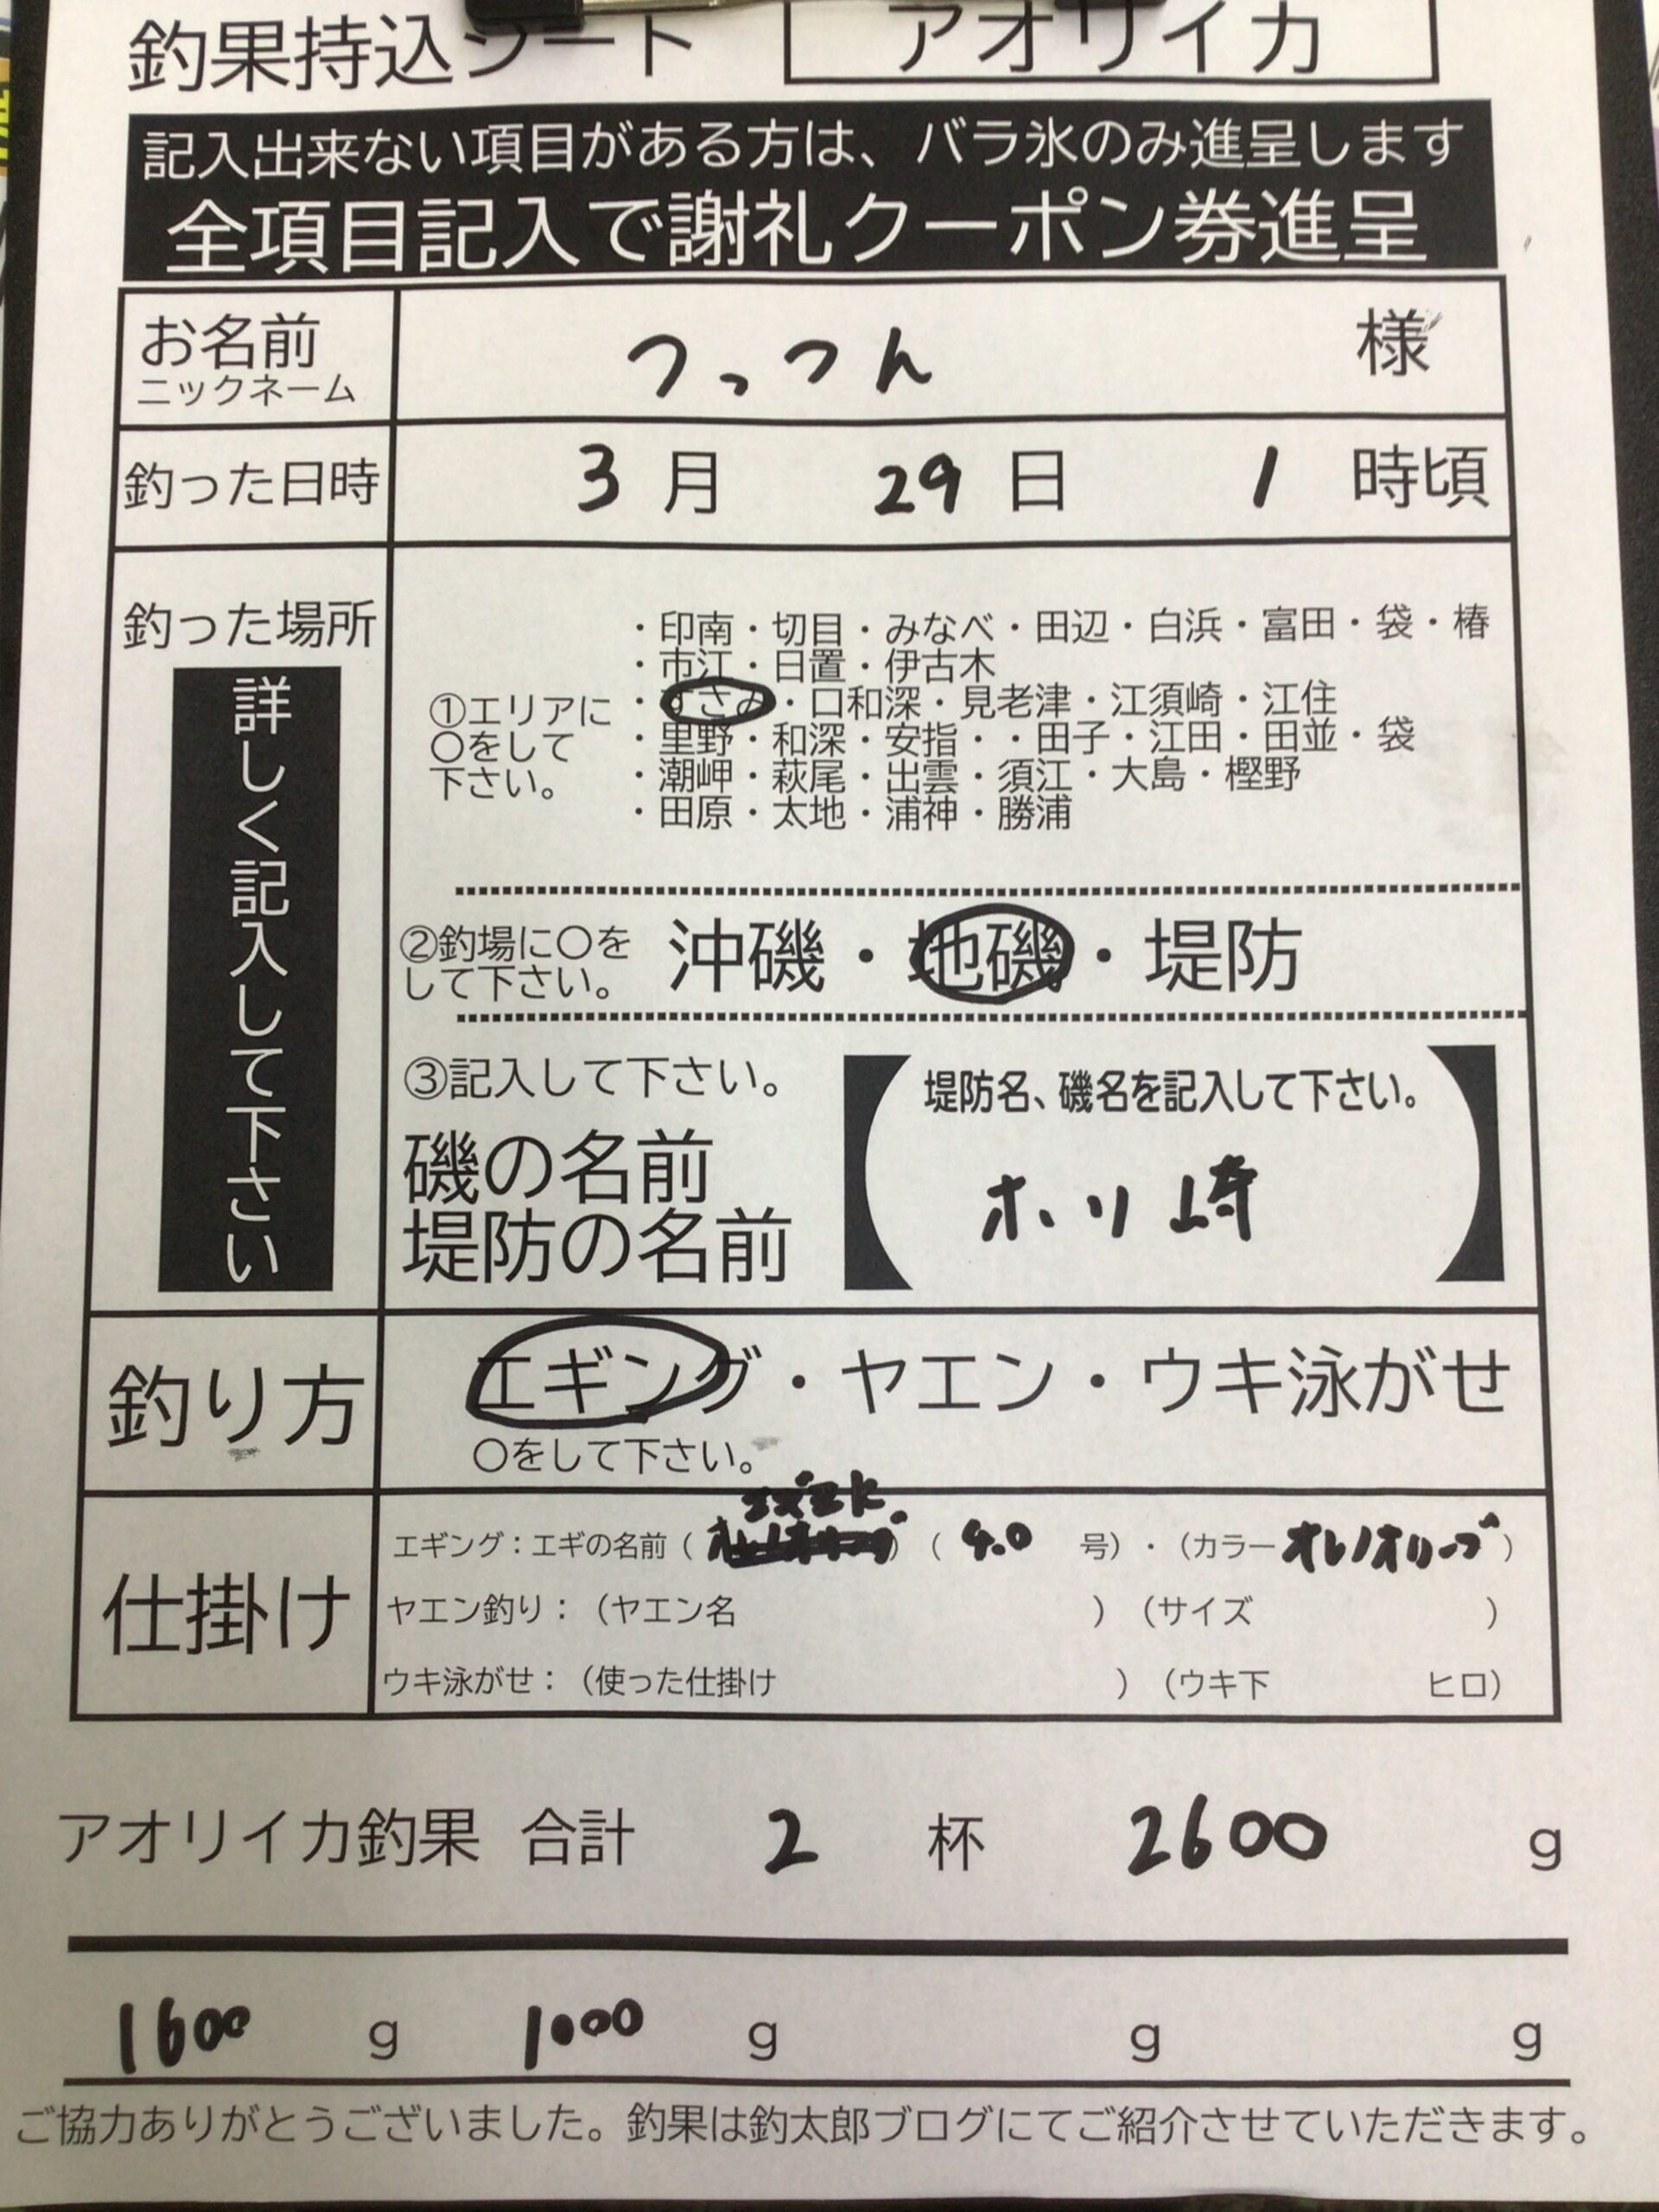 釣果持込シート アオリイカ
記入出来ない項目がある方は、バラ氷のみ進呈します
全項目記入で謝礼クーポン券進呈
お名前 つっつん 様
ニックネーム
釣った日時 3月 29日 1時頃
釣った場所
詳しく記入して下さい
①エリアに〇をして下さい。
・印南・切目・みなべ・田辺・白浜・富田・袋・椿
・市江・日置・伊古木
・すさみ・口和深・見老津・江須崎・江住
・里野・和深・安指・・田子・江田・田並・袋
・潮岬・萩尾・出雲・須江・大島・樫野
・田原・太地・浦神・勝浦
②釣場に〇をして下さい。 沖磯・地磯・堤防
③記入して下さい。
磯の名前
堤防の名前
堤防名、磯名を記入して下さい。
ホリ崎
釣り方 エギング・ヤエン・ウキ泳がせ
〇をして下さい。
仕掛け
エギング：エギの名前（ ）（ 4.0 号）・（カラーオレノオリーブ）
ヤエン釣り：（ヤエン名 ）（サイズ ）
ウキ泳がせ：（使った仕掛け ）（ウキ下 ヒロ）
アオリイカ釣果 合計 2 杯 2600 g
1600 g 1000 g g g
ご協力ありがとうございました。釣果は釣太郎ブログにてご紹介させていただきます。